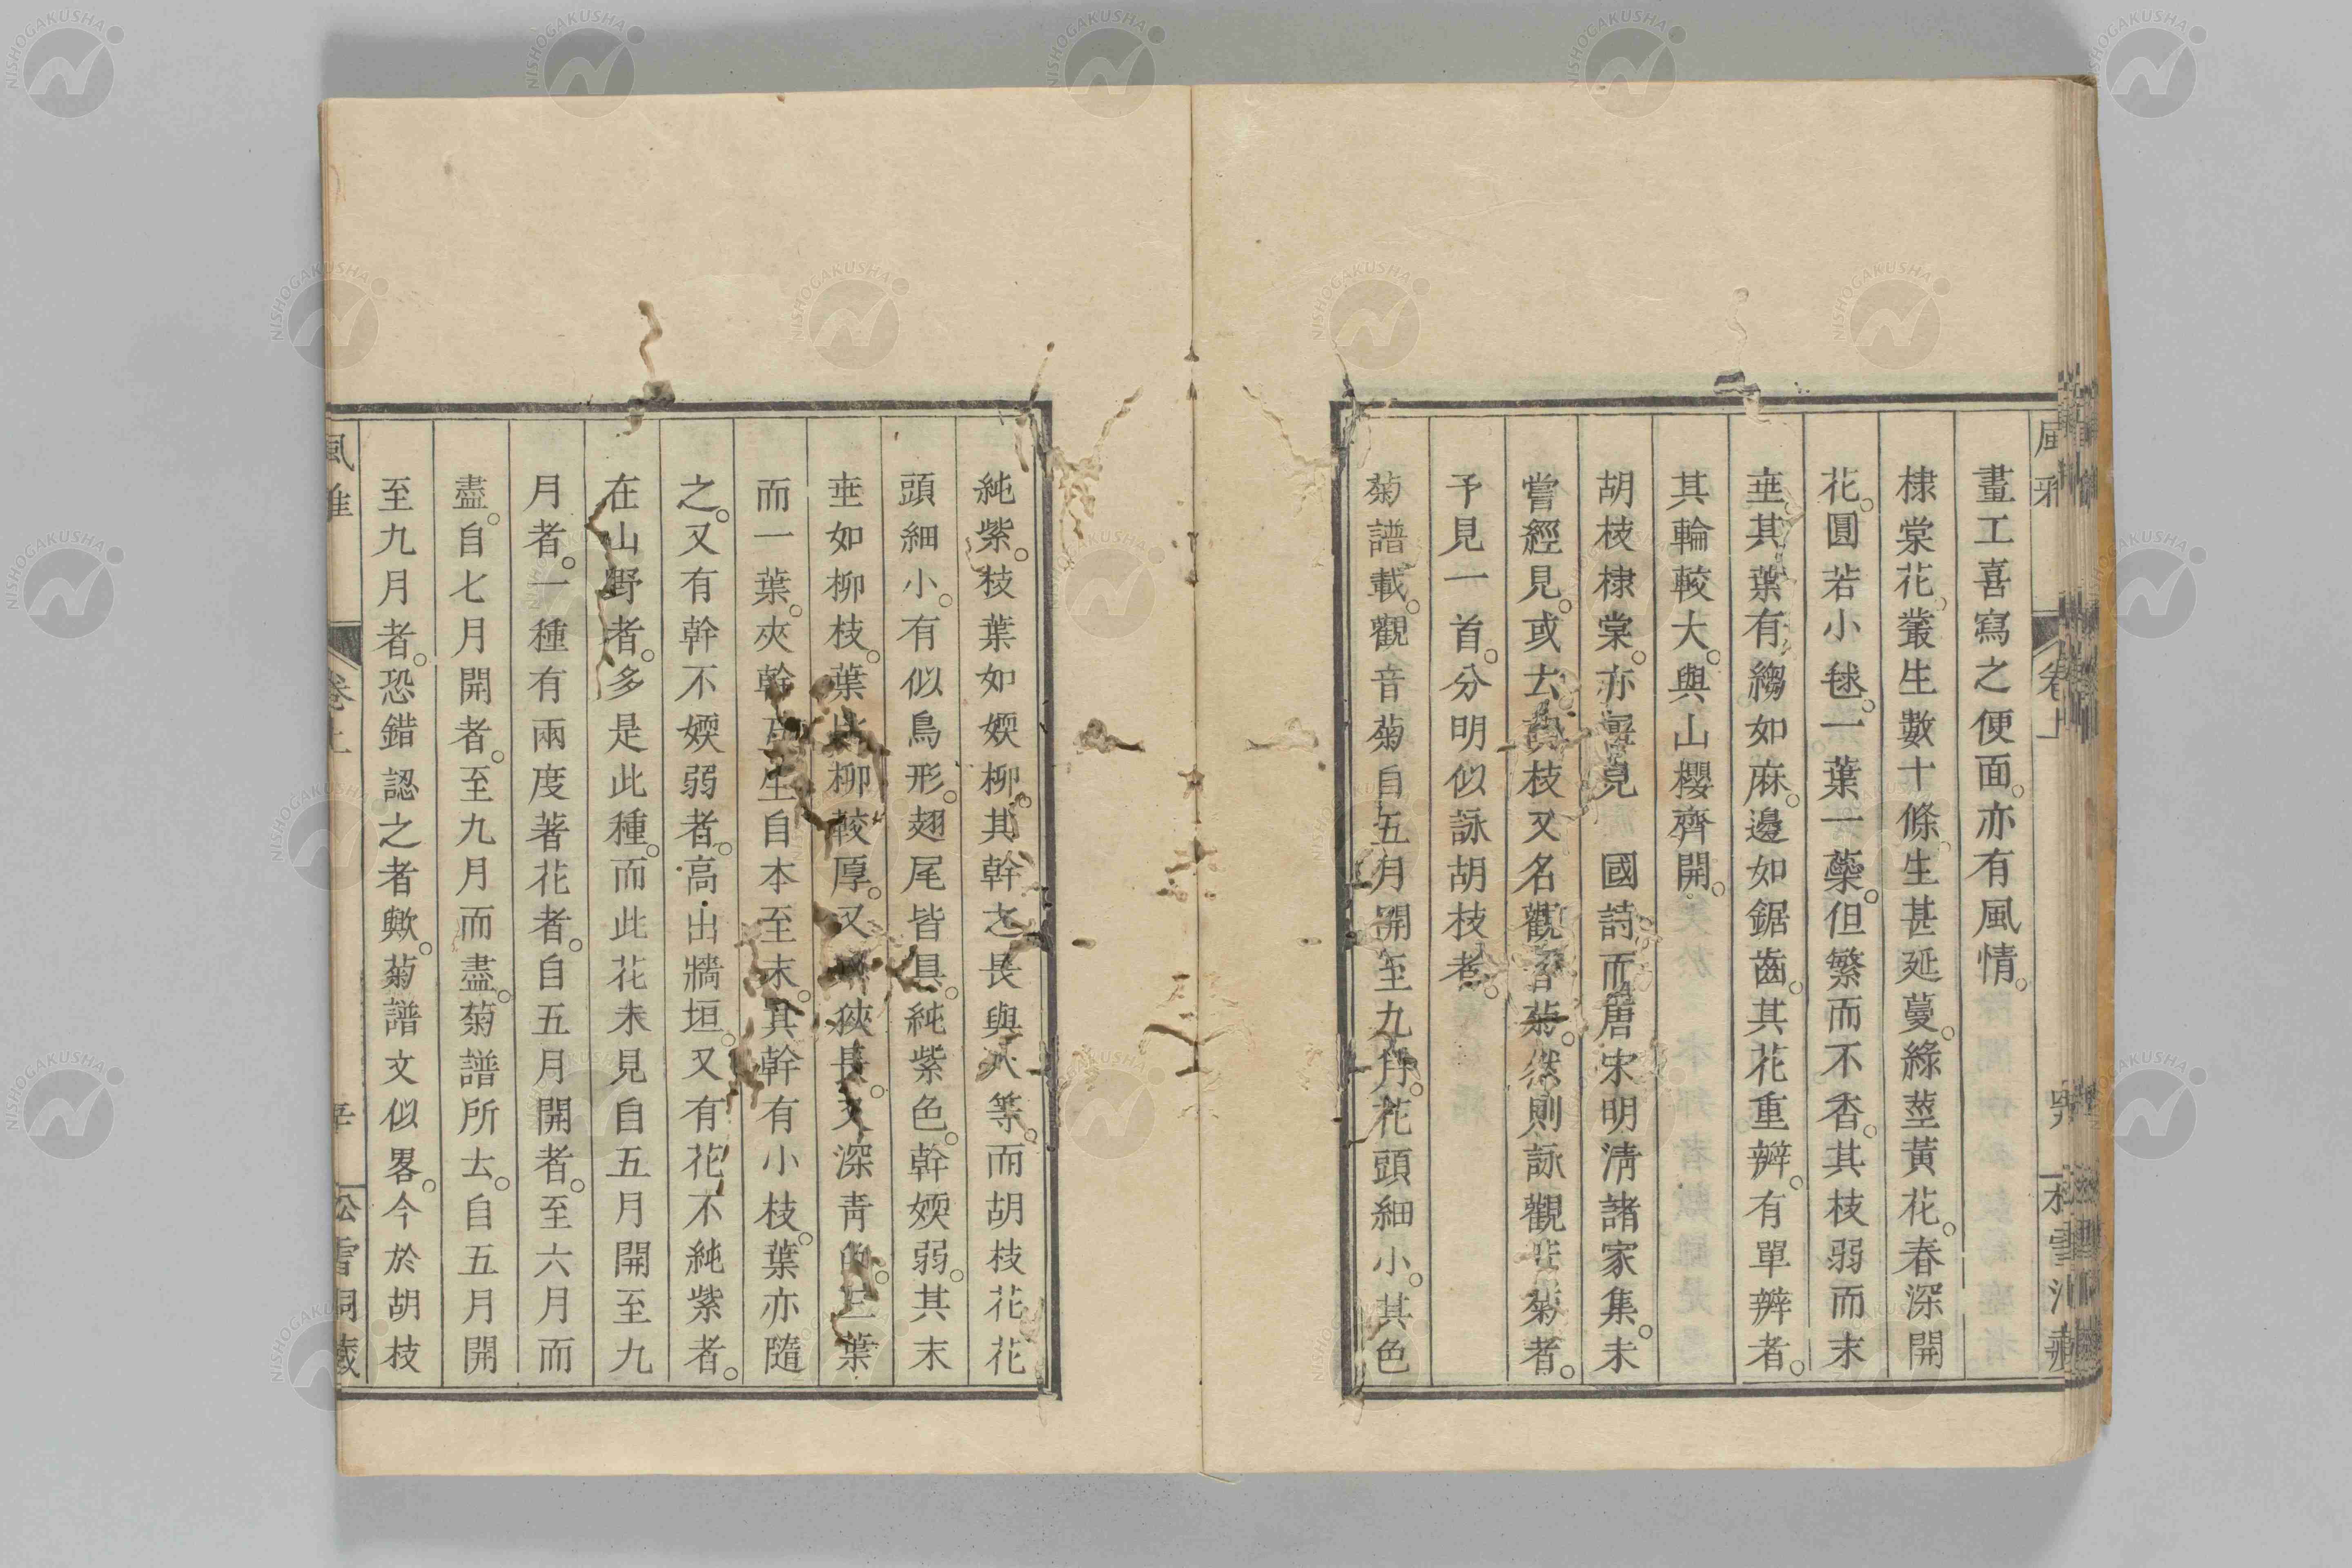 畫工喜寫之便面。亦有風情。
棣棠花。叢生數十條。生甚延蔓。綠莖黃花。春深開
花。圓若小毬。一葉一蘂。但繁而不香。其枝弱而末
垂。其葉有縐如麻。邊如鋸齒。其花重瓣。有單瓣者。
其輪較大。與山櫻齊開。
胡枝棣棠。亦屢見 國詩而唐宋明淸諸家集。未
嘗經見。或去枝又名觀音菊。然則詠觀音菊者。
予見一首。分明似詠胡枝者。
菊譜載。觀音菊自五月開至九月。花頭細小。其色
純紫。枝葉如媆柳。其幹之長與人等。而胡枝花花
頭細小。有似鳥形。翅尾皆具。純紫色。幹媆弱。其末
垂如柳枝。葉比柳較厚。又狹長。又深靑色。三葉
而一葉。夾幹互生自本至末。其幹有小枝。葉亦隨
之。又有幹不媆弱者。高出牆垣。又有花不純紫者。
在山野者。多是此種。而此花未見自五月開至九
月者。一種有兩度著花者。自五月開者。至六月而
盡。自七月開者。至九月而盡。菊譜所去。自五月開
至九月者。恐錯認之者歟。菊譜文似畧。今於胡枝
風雅
卷上